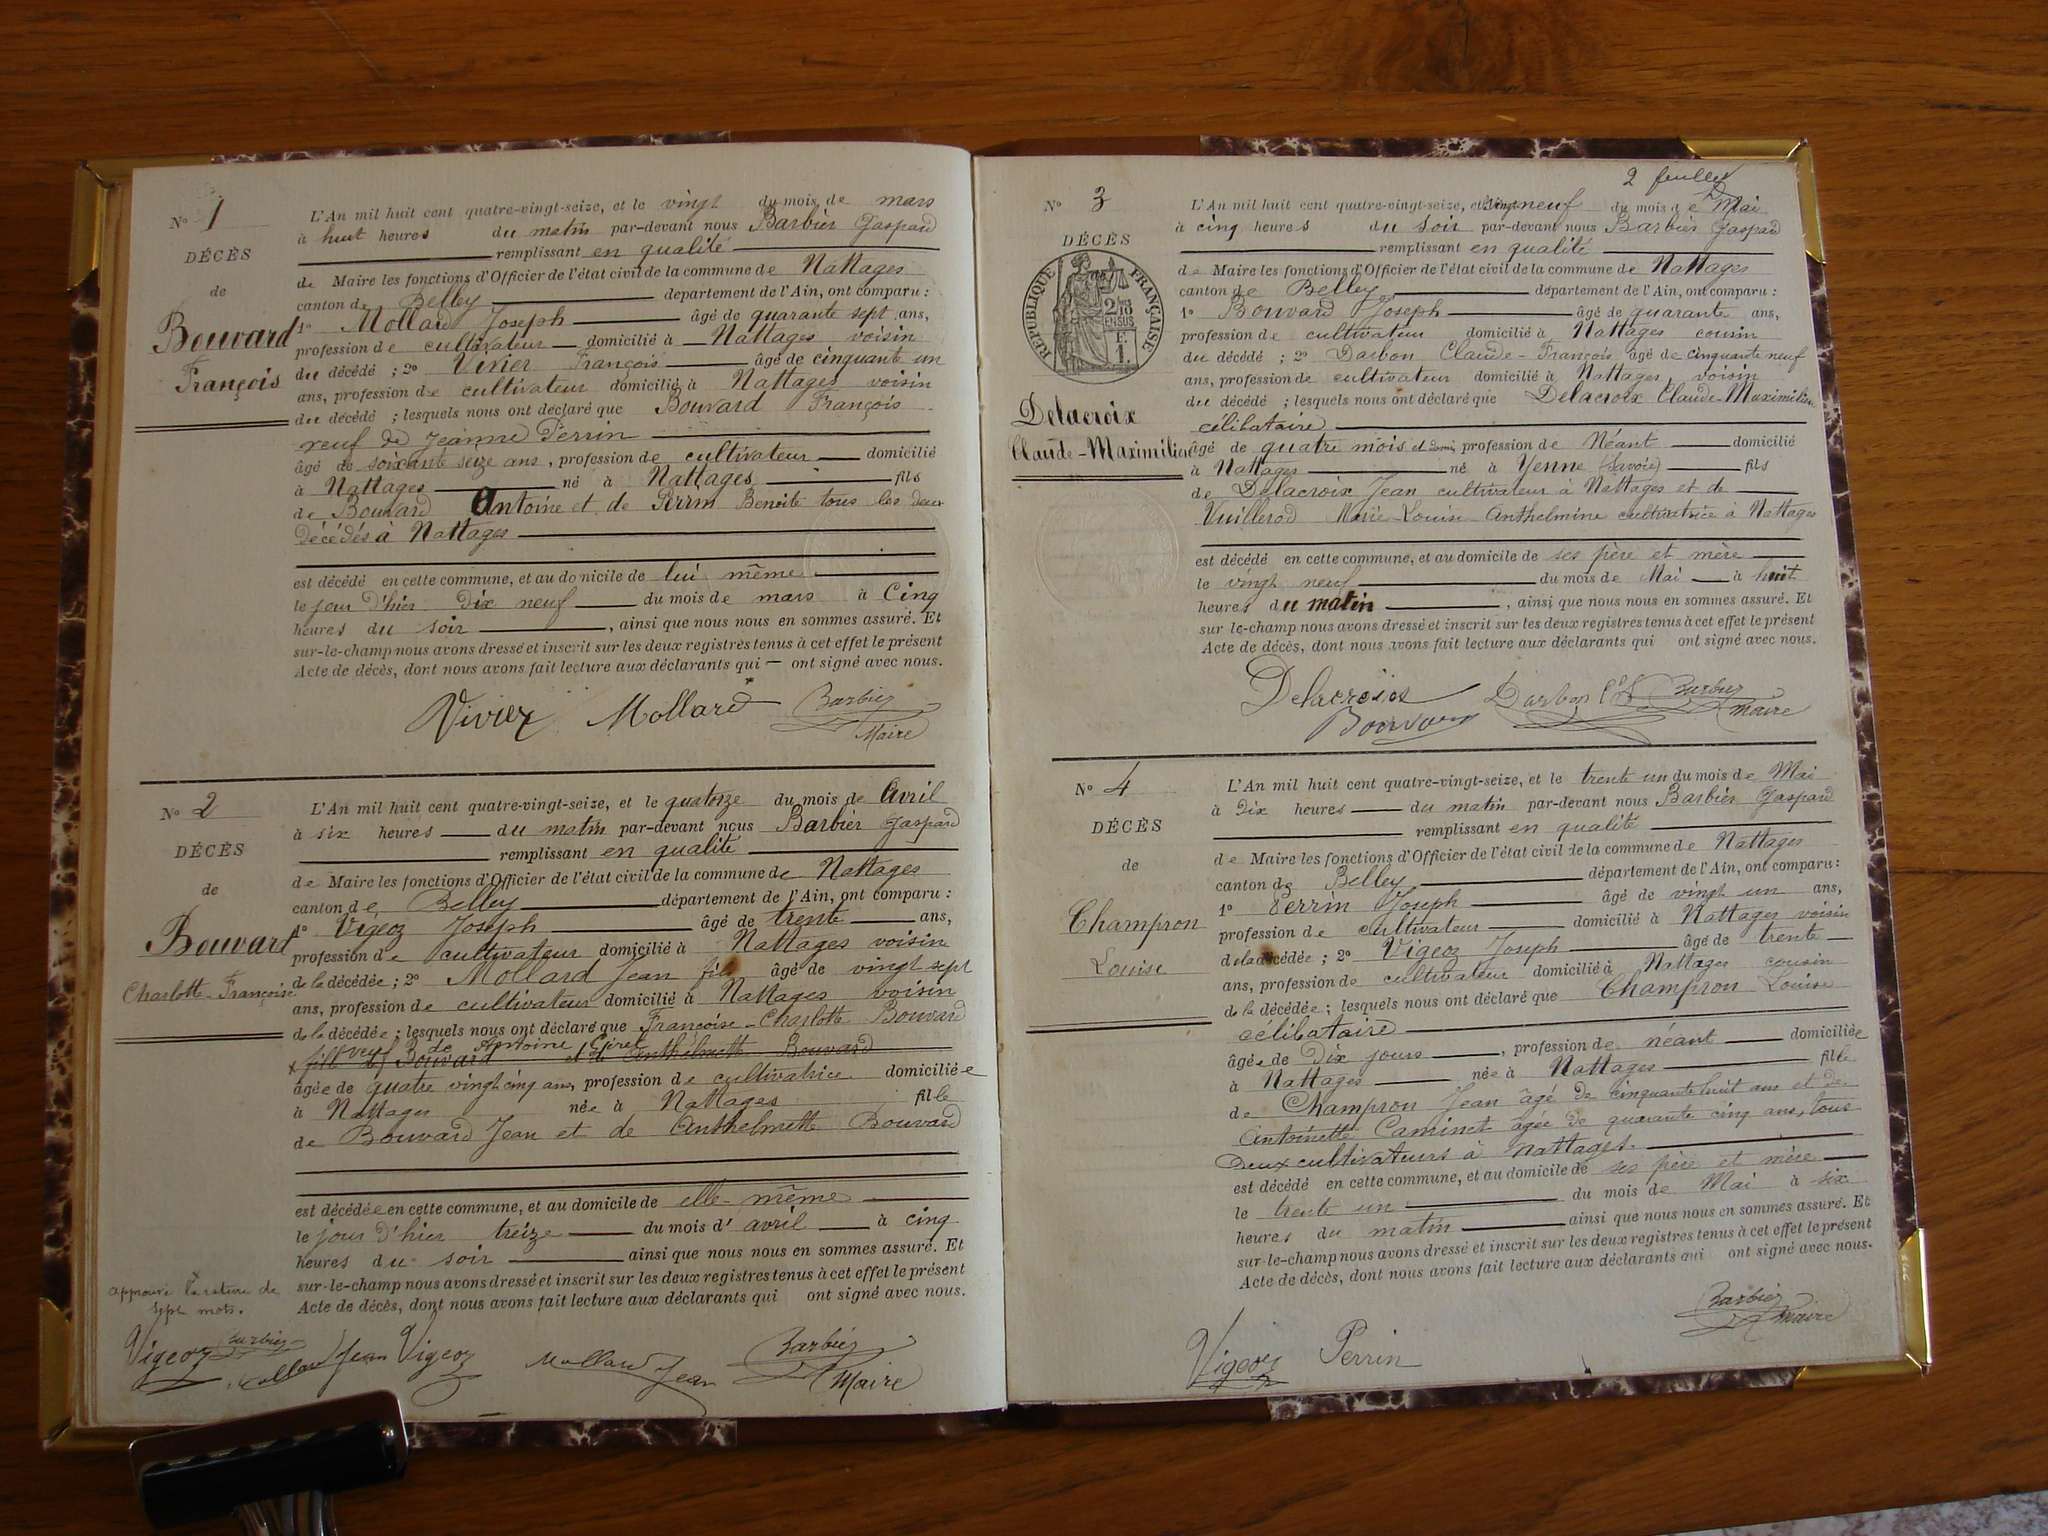 N° 1
DÉCÈS
de
Bouvard
François
L'An mil huit cent quatre-vingt-seize, et le vingt du mois de mars
à huit heures du matin par-devant nous Barbier Gaspard
remplissant en qualité
de Maire les fonctions d'Officier de l'état civil de la commune de Nattages
canton de Belley département de l'Ain, ont comparu :
1° Mollard Joseph âgé de quarante sept ans,
profession de cultivateur domicilié à Nattages voisin
du décédé ; 2° Vivier François âgé de cinquante un
ans, profession de cultivateur domicilié à Nattages voisin
du décédé ; lesquels nous ont déclaré que Bouvard François
veuf de Jeanne Perrin
âgé de soixante seize ans, profession de cultivateur domicilié
à Nattages né à Nattages fils
de Bouvard Antoine et de Perrin Benoite tous les deux
décédés à Nattages
est décédé en cette commune, et au domicile de lui même
le jour d'hier dix neuf du mois de mars à cinq
heures du soir, ainsi que nous nous en sommes assuré. Et
sur-le-champ nous avons dressé et inscrit sur les deux registres tenus à cet effet le présent
Acte de décès, dont nous avons fait lecture aux déclarants qui — ont signé avec nous.
Vivier Mollard Barbier
Maire
N° 2
DÉCÈS
de
Bouvard
Charlotte-Françoise
L'An mil huit cent quatre-vingt-seize, et le quatorze du mois de Avril
à six heures du matin par-devant nous Barbier Gaspard
remplissant en qualité
de Maire les fonctions d'Officier de l'état civil de la commune de Nattages
canton de Belley département de l'Ain, ont comparu :
1° Vigeoz Joseph âgé de trente ans,
profession de cultivateur domicilié à Nattages voisin
de la décédée ; 2° Mollard Jean fils âgé de vingt sept
ans, profession de cultivateur domicilié à Nattages voisin
de la décédée ; lesquels nous ont déclaré que Françoise-Charlotte Bouvard
de Antoine
Bouvard Anthelmette Bouvard
âgée de quatre vingt cinq ans, profession de cultivatrice domiciliée
à Nattages née à Nattages fille
de Bouvard Jean et de Anthelmette Bouvard
est décédée en cette commune, et au domicile de elle-même
le jour d'hier treize du mois d' avril à cinq
heures du soir ainsi que nous nous en sommes assuré. Et
sur-le-champ nous avons dressé et inscrit sur les deux registres tenus à cet effet le présent
Acte de décès, dont nous avons fait lecture aux déclarants qui ont signé avec nous.
approuvé la rature de
sept mots.
Vigeoz Barbier Mollard Jean Vigeoz Mollard Jean Barbier
Maire
2 feuillet
N° 3
DÉCÈS
RÉPUBLIQUE FRANÇAISE
Delacroix
Claude-Maximilien
L'An mil huit cent quatre-vingt-seize, et vingt neuf du mois de Mai
à cinq heures du soir par-devant nous Barbier Gaspard
remplissant en qualité
de Maire les fonctions d'Officier de l'état civil de la commune de Nattages
canton de Belley département de l'Ain, ont comparu :
1° Bouvard Joseph âgé de quarante ans,
profession de cultivateur domicilié à Nattages cousin
du décédé ; 2° Darbon Claude-François âgé de cinquante neuf
ans, profession de cultivateur domicilié à Nattages voisin
du décédé ; lesquels nous ont déclaré que Delacroix Claude-Maximilien
célibataire
âgé de quatre mois et demi profession de Néant domicilié
à Nattages né à Yenne (Savoie) fils
de Delacroix Jean cultivateur à Nattages et de
Vuillerod Marie-Louise Anthelmine cultivatrice à Nattages
est décédé en cette commune, et au domicile de ses père et mère
le vingt neuf du mois de Mai à huit
heures du matin, ainsi que nous nous en sommes assuré. Et
sur-le-champ nous avons dressé et inscrit sur les deux registres tenus à cet effet le présent
Acte de décès, dont nous avons fait lecture aux déclarants qui ont signé avec nous.
Delacroix Darbon Barbier
Bouvard Maire
N° 4
DÉCÈS
de
Champron
Louise
L'An mil huit cent quatre-vingt-seize, et le trente un du mois de Mai
à dix heures du matin par-devant nous Barbier Gaspard
remplissant en qualité
de Maire les fonctions d'Officier de l'état civil de la commune de Nattages
canton de Belley département de l'Ain, ont comparu :
1° Perrin Joseph âgé de vingt un ans,
profession de cultivateur domicilié à Nattages voisin
de la décédée ; 2° Vigeoz Joseph âgé de trente
ans, profession de cultivateur domicilié à Nattages cousin
de la décédée ; lesquels nous ont déclaré que Champron Louise
célibataire
âgée de dix jours, profession de néant domiciliée
à Nattages née à Nattages fille
de Champron Jean âgé de cinquante huit ans et de
Antoinette Caminet âgée de quarante cinq ans, tous
deux cultivateurs à Nattages.
est décédé en cette commune, et au domicile de ses père et mère
le trente un du mois de Mai à six
heures du matin ainsi que nous nous en sommes assuré. Et
sur-le-champ nous avons dressé et inscrit sur les deux registres tenus à cet effet le présent
Acte de décès, dont nous avons fait lecture aux déclarants qui ont signé avec nous.
Barbier
Maire
Vigeoz Perrin